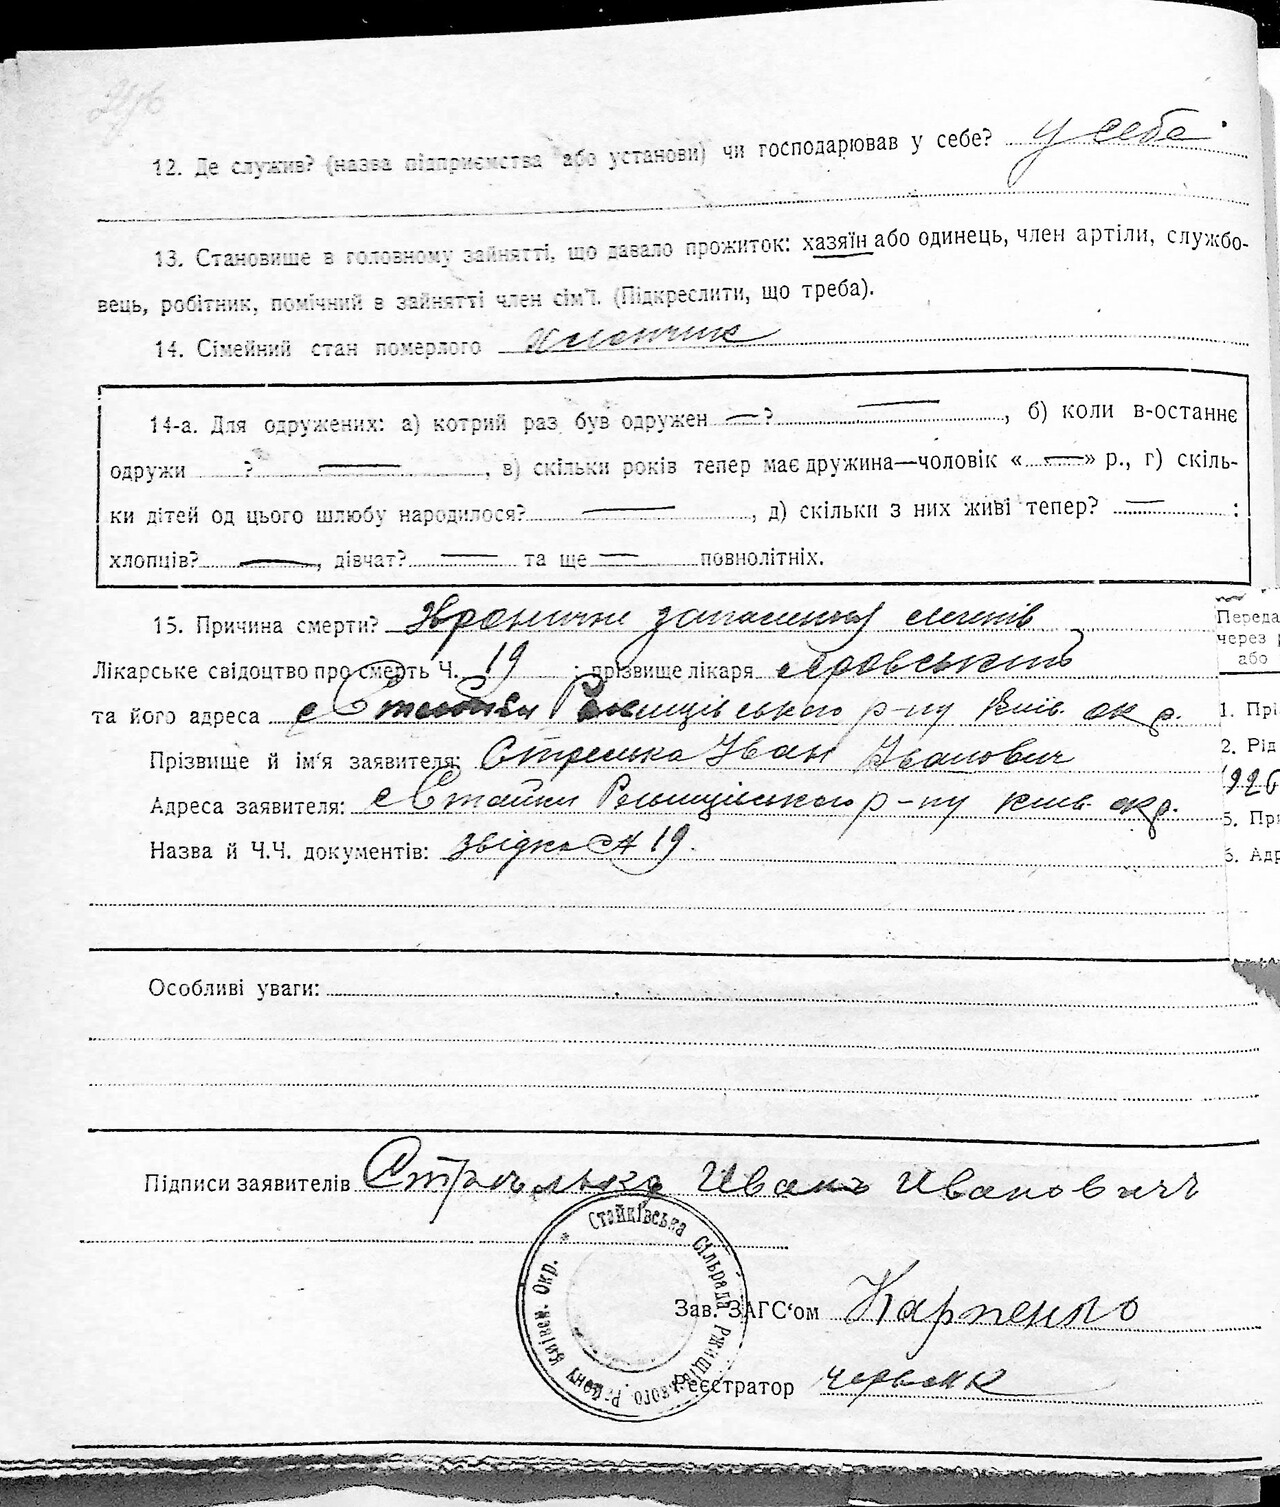 12. Де служив? (назва підприємства або установи) чи господарював у себе? у себе
13. Становище в головному зайнятті, що давало прожиток: хазяїн або одинець, член артіли, службо-
вець, робітник, помічний в зайнятті член сім'ї. (Підкреслити, що треба).
14. Сімейний стан померлого
14-а. Для одружених: а) котрий раз був одружен — ? —, б) коли в-останнє
одружи ? —, в) скільки років тепер має дружина—чоловік « — » р., г) скіль-
ки дітей од цього шлюбу народилося? —, д) скільки з них живі тепер? — :
хлопців? —, дівчат? — та ще — повнолітніх.
15. Причина смерти? запалення
Лікарське свідоцтво про смерть Ч. 19 : прізвище лікаря
та його адреса с Стайки Ржищівського р-ну Київ. окр.
Прізвище й ім'я заявителя: Стрелька Іван Іванович
Адреса заявителя: с Стайки Ржищівського р-ну Київ. окр.
Назва й Ч.Ч. документів: звідка № 19.
Особливі уваги:
Підписи заявителів Иванъ Ивановичъ
* Стайківська Сільрада Ржищівського Району Київск. Окр.
Зав. ЗАГС'ом Карпенко
Реєстратор
Переда
через
або
1. Прі
2. Рід
1926
5. При
6. Адр